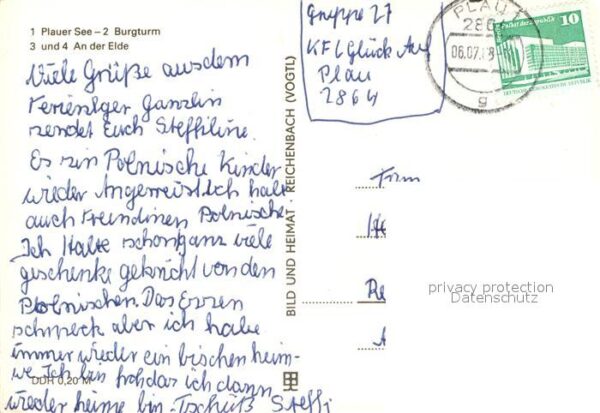 1 Plauer See – 2 Burgturm
3 und 4 An der Elde
Viele Grüße aus dem
Ferienlger Ganzlin
sendet Euch Steffiline.
Es sin Polnische Kinder
wieder Angerreist Ich hab
auch Freundinen Polnische.
Ich Habe schon ganz viele
geschenke gekricht von den
Polnischen. Das Essen
schmeck aber ich habe
immer wieder ein bischen heim-
we. Ich bin froh das ich dann
wieder heime bin. Tschüß Steffi
DDR 0,20 M
Gruppe 27
KFL Glück Auf
Plau
2864
BILD UND HEIMAT · REICHENBACH (VOGTL)
PLAU
286
06.07.
g
Palast der Republik 10
DEUTSCHE DEMOKRATISCHE REPUBLIK
Fam
Re
A
privacy protection
Datenschutz